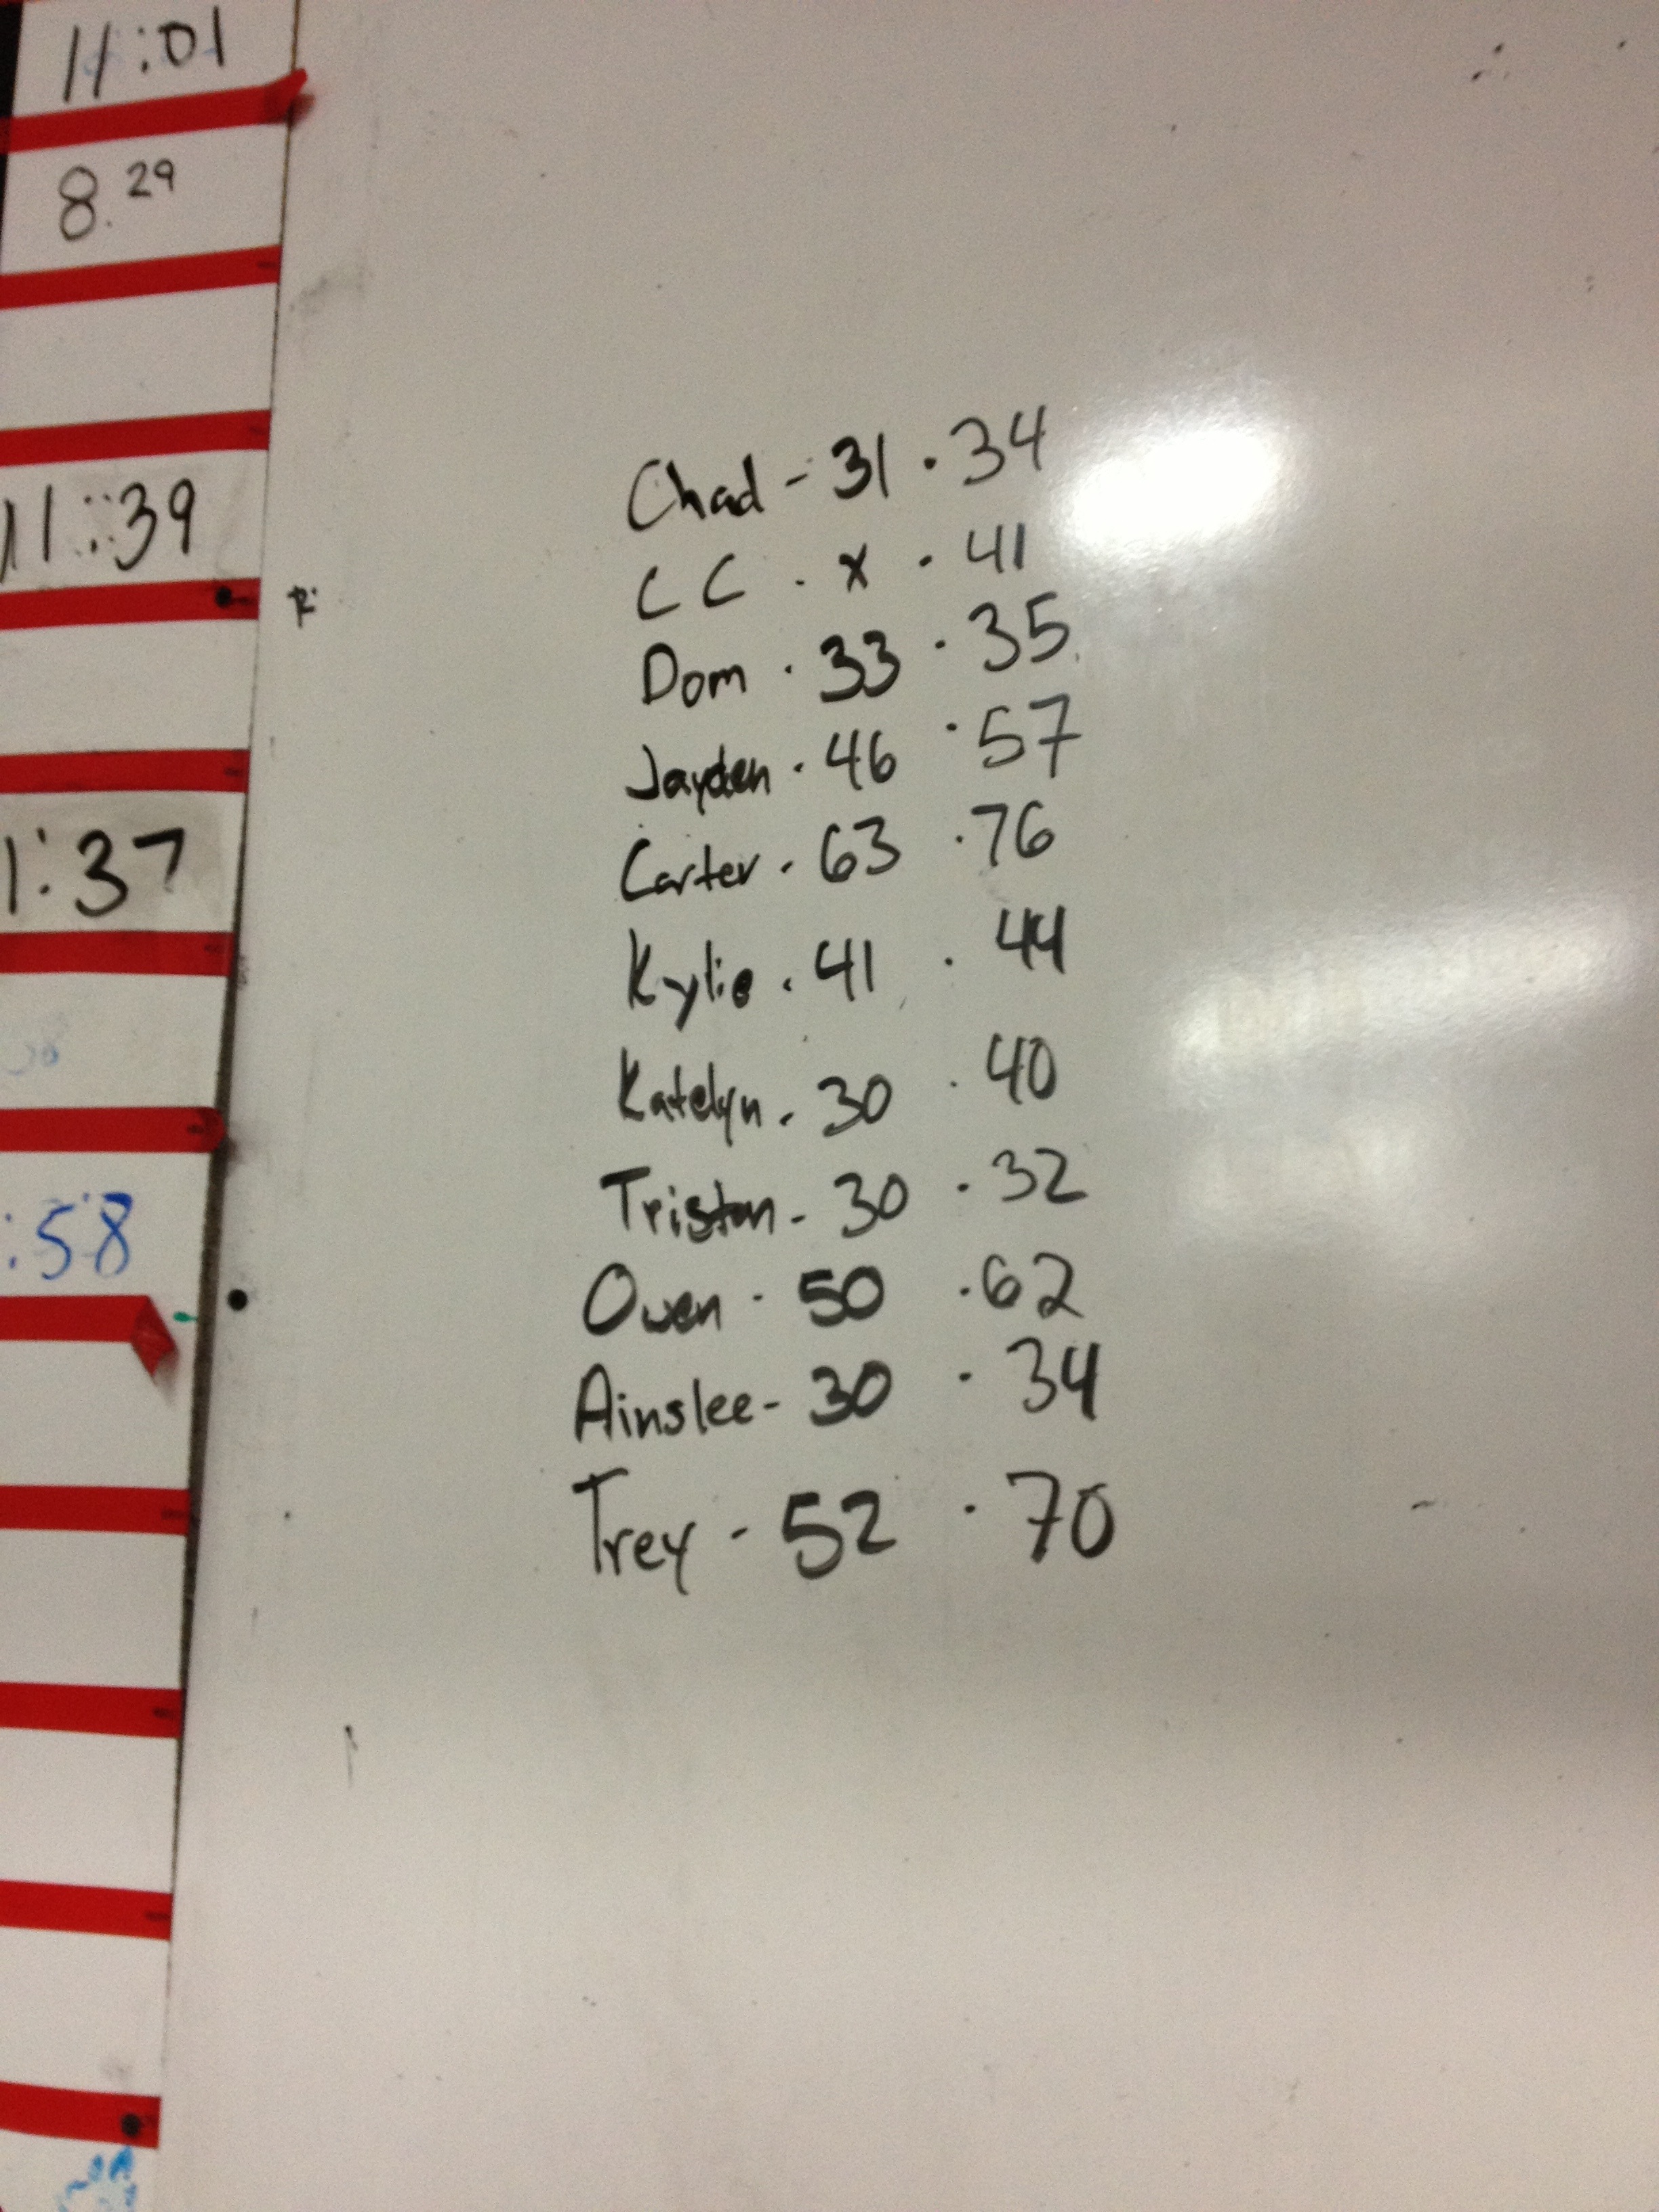 11:01
8.29
11:39
1:37
:58
Chad - 31 . 34
CC . x . 41
Dom . 33 . 35
Jayden . 46 . 57
Carter . 63 . 76
Kylie . 41 . 44
Katelyn . 30 . 40
Triston - 30 . 32
Owen - 50 . 62
Ainslee - 30 . 34
Trey - 52 . 70